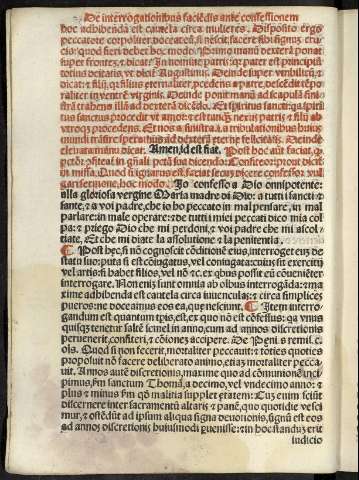 De interrogationibus faciēdis ante confessionem
hoc adhibenda est cautela circa mulieres. Disposito ergo
peccatore corpoliter, doceat eū, si nescit, facere sibi signuʒ cru-
cis: quod fieri debet hoc modo. Primo manū dexterā ponat
super frontez, ⁊ dicat: In nomine patris: qꝛ pater est principiū
totius deitatis, vt dicit Augustinus. Deinde super vmbilicū, ⁊
dicat: ⁊ filij. qꝛ filius eternaliter, procedens a patre, descēdit tēpo
raliter in ventrē virginis. Deinde ponat manū ad scapulā sini-
strā trahens illā ad dexterā dicēdo. Et spiritus sancti: qꝛ spiri-
tus sanctus procedit vt amor: ⁊ est tanqʒ nexus patris ⁊ filij ab
vtroqʒ procedens. Et nos a sinistra.i. a tribulationibus huius
mundi traslati speramus ad dexterā eterne felicitatis. Deinde
eleuata manu dicat. Amen, id est fiat. Post hoc aūt faciat, q̄
pctōr pfiteat in gn̄ali petā sua dicendo: Confiteor: prout dicit
in missa. Quod si ignarus est, faciat secuʒ dicere confessor vul
gari sermone, hoc modo. Io confesso a Dio onnipotente:
alla gloriosa vergine Maria madre di Dio: a tutti i sancti ⁊
sante, ⁊ a voi padre, che io ho peccato in mal pensare, in mal
parlare: in male operare: ⁊ de tutti i miei peccati dico mia col
pa: ⁊ priego Dio che mi perdoni, ⁊ voi padre che mi ascol-
tiate, Et che mi diate la assolutione ⁊ la penitentia.
¶ Post hec, si nō cognoscit cōditionē eius, interroget eūʒ de
statu suo: puta si est cōiugatus, vel conuigata: cuius sit exercitij
vel artis: si habet filios, vel nō ⁊c. ex qbus possit eū cōueniēter
interrogare. Non eniʒ sunt omnia ab olbus interrogāda: ⁊ ma
xime adhibenda est cautela circa iuuenculas: ⁊ circa simplices
pueros: ne doceamus eos ea, que nesciunt. ¶ Item interro-
gandum est quantum tp̄s, est, ex quo nō est cōfessus: qꝛ vnus
quisqʒ tenetur salte semel in anno, cum ad annos discretionis
peruenerit, confiteri, ⁊ cōionez accipere. De Peni. ⁊ remi. l. c.
ols. Quod si non fecerit, mortaliter peccauit: ⁊ toties quoties
proposuit nō facere deliberato animo, etiaʒ mortaliter pecca-
uit. Annos autē discretionis, maxime quo ad cōmunionē inci
pimus, ẜm sanctum Thomā, a decimo, vel vndecimo anno: ⁊
plus ⁊ minus ẜm qd malitia supplet etatem: Cuʒ enim sciūt
discernere inter sacramentū altaris ⁊ panē, quo quotidie vesci
mur, ⁊ ostēdūt ad ipsum aliqua signa deuotionis, signū est eos
ad annos discretionis huiusmodi puenisse: ⁊ in hoc standuʒ erit
iudicio